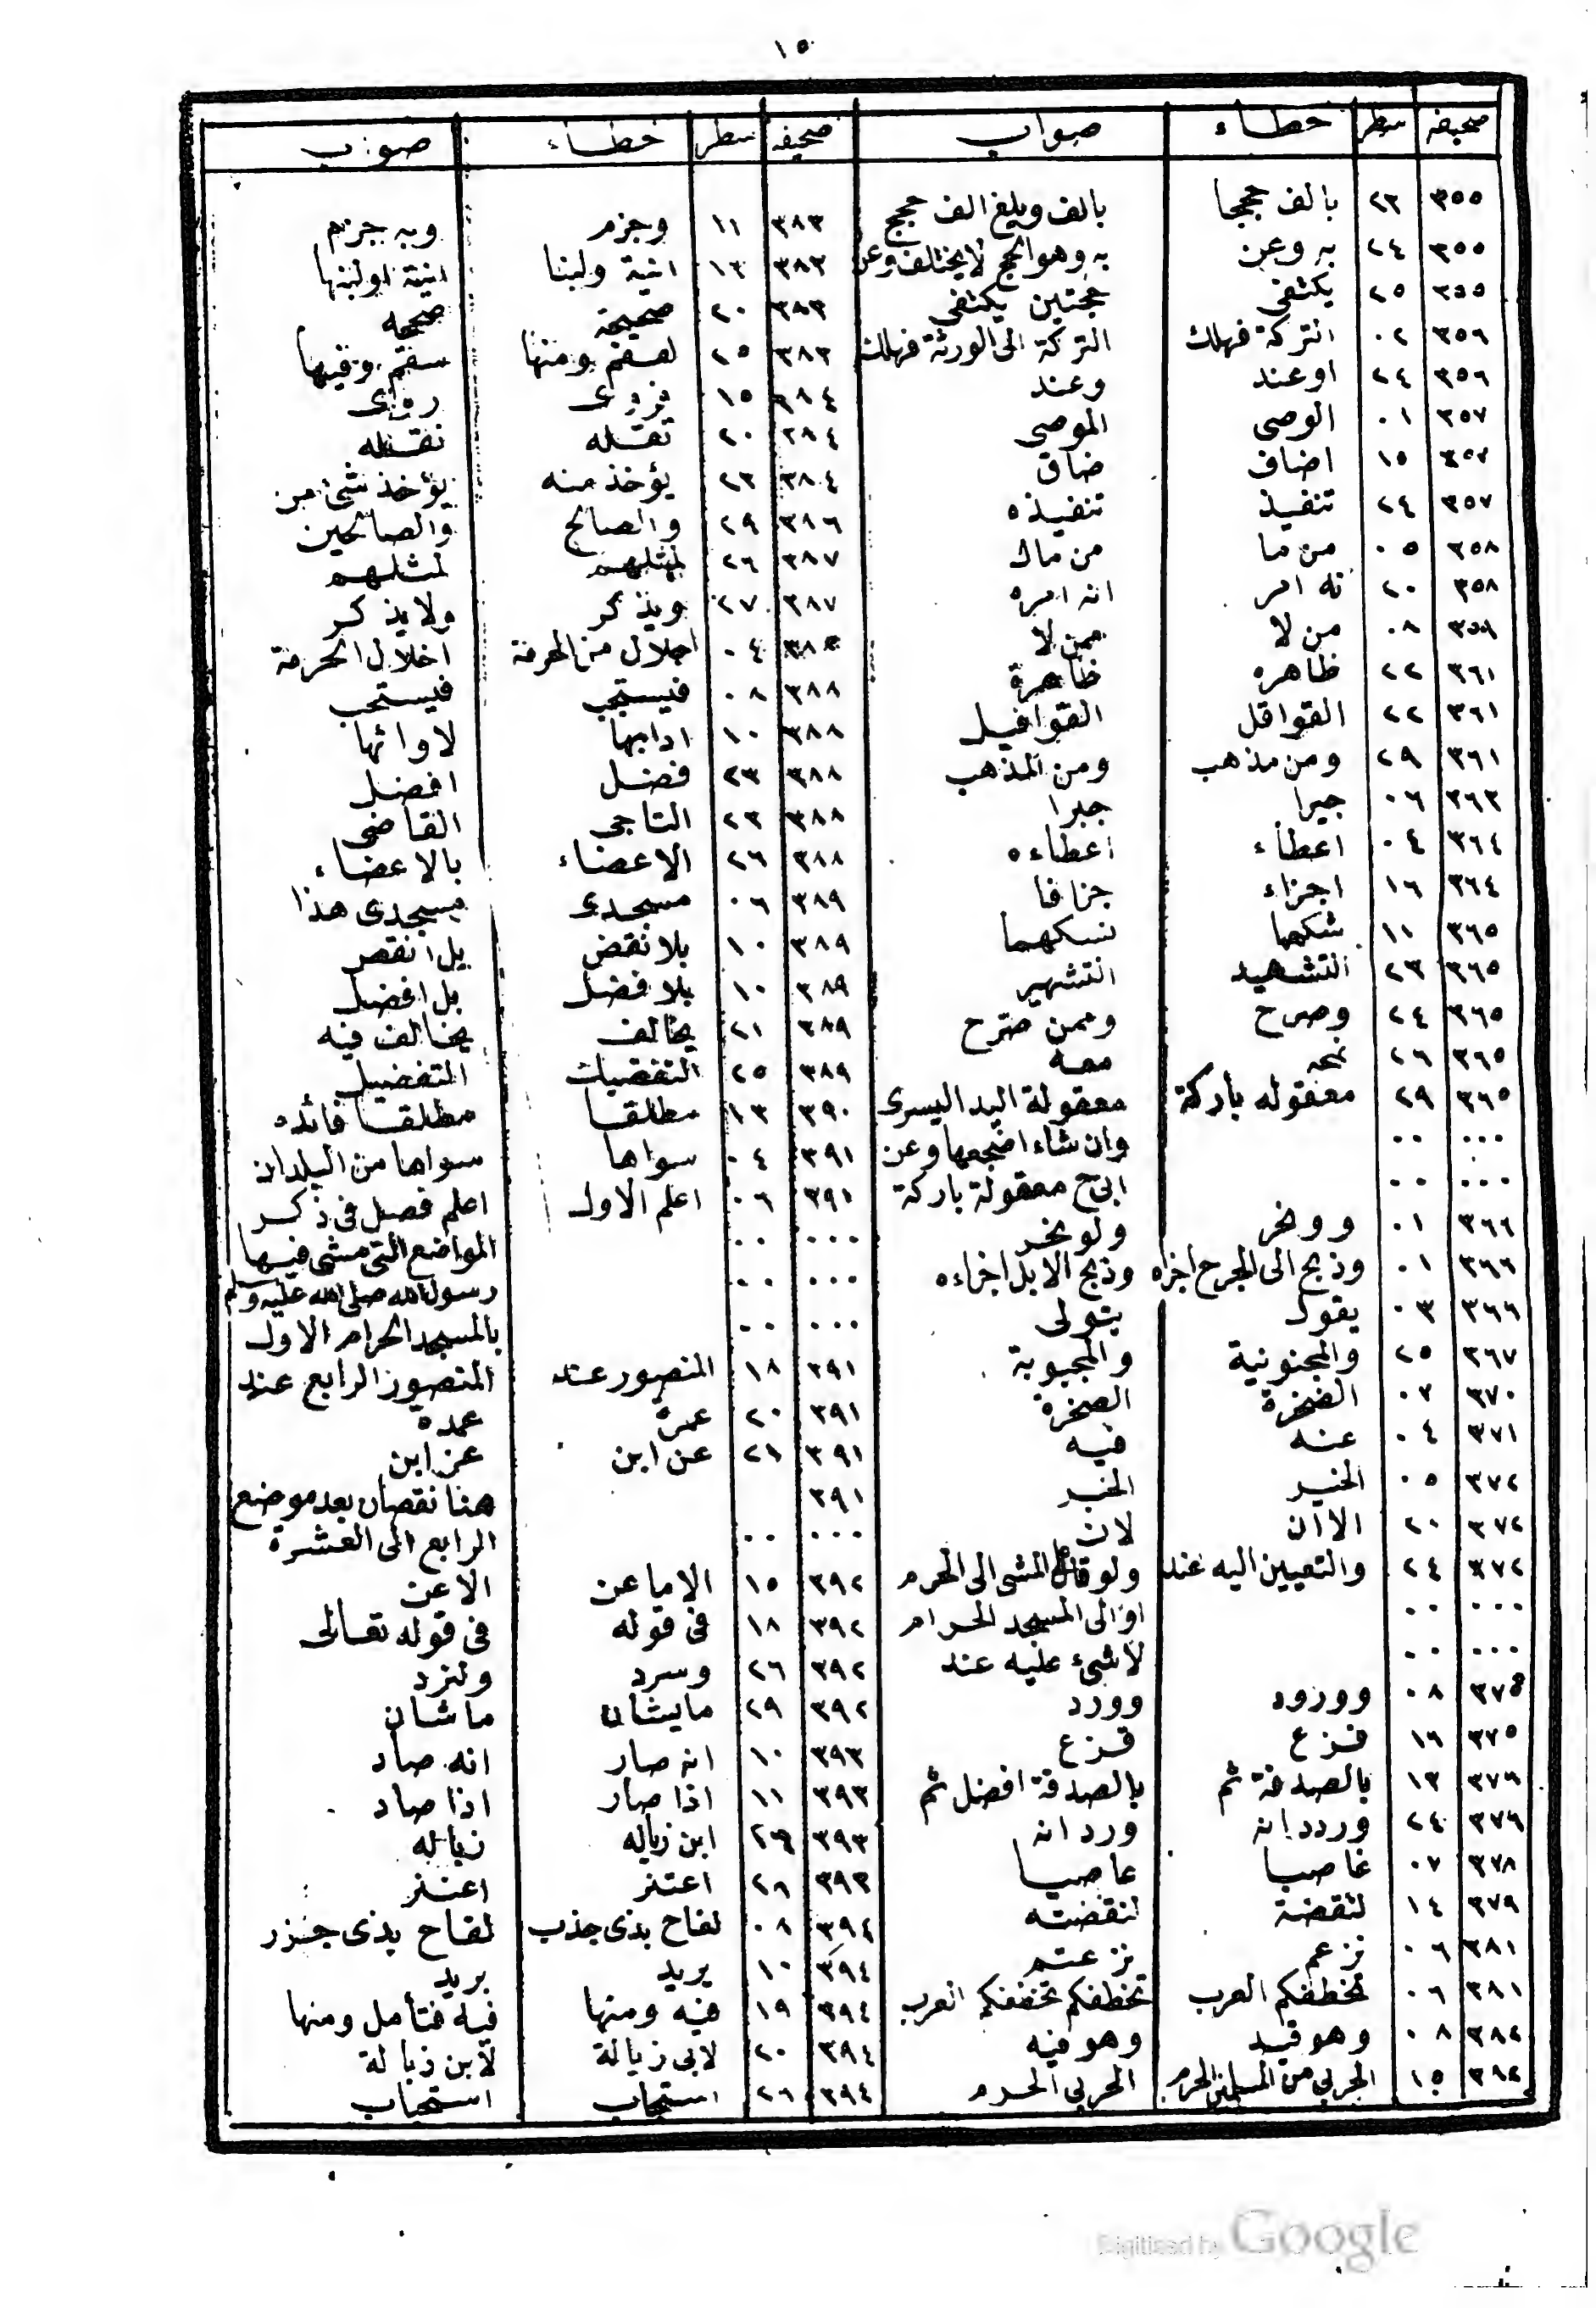 ١٥
صحيفه سطر خطاء صواب
٣٥٥ ٢٣ بالف حججا بالف ويلغ الف حجج
٣٥٥ ٢٤ به وعن به وهو الحج لا يختلف وعن
٣٥٥ ٢٥ يكتفى حجتين يكتفى
٣٥٦ ٠٢ التركة فهلك التركة الى الورثة فهلك
٣٥٦ ٢٤ اوعند وعند
٣٥٧ ٠١ الوصى الموصى
٣٥٧ ١٥ اضاف ضاق
٣٥٧ ٢٤ تنفيذ تنفيذه
٣٥٨ ٠٥ من ما من مال
٣٥٨ ٢٠ نه امر انه امره
٣٥٩ ٠٨ من لا ممن لا
٣٦١ ٢٢ ظاهره ظاهرة
٣٦١ ٢٢ القواقل القوافيل
٣٦١ ٢٩ ومن مذهب ومن المذهب
٣٦٣ ٠٦ جيرا جبرا
٣٦٤ ٠٤ اعطاء اعطاءه
٣٦٤ ١٦ اجزاء جزافا
٣٦٥ ١١ شكها نسكهما
٣٦٥ ٢٣ التشهيد التشهير
٣٦٥ ٢٤ وصرح وممن صرح
٣٦٥ ٢٦ معه
٣٦٥ ٢٩ معقوله باركة معقولة اليد اليسرى
٠٠٠ ٠٠ وان شاء اضجعها وعن
٠٠٠ ٠٠ ابى ح معقولة باركة
٣٦٦ ٠١ وونحر ولو نحر
٣٦٦ ٠١ وذبح الى الجرح اجزاه وذبح الابل اجزاءه
٣٦٦ ٠٣ يقول يتولى
٣٦٧ ٢٥ والمجنونية والمجبوبة
٣٧٠ ٠٢ الضخرة الصخرة
٣٧١ ٠٤ عنه فيه
٣٧٢ ٠٥ الخير الخبر
٣٧٢ ٢٠ الاان لان
٣٧٢ ٢٤ والتعيين اليه عند ولو قال المشى الى الحرم
٠٠٠ ٠٠ او الى المسجد الحرام
٠٠٠ ٠٠ لا شىء عليه عند
٣٧٥ ٠٨ وورود وورد
٣٧٥ ١٦ فزع قزع
٣٧٦ ١٣ بالصدقة ثم بالصدقة افضل ثم
٣٧٦ ٢٤ وردد انه ورد انه
٣٧٨ ٠٧ غاصبا عاصيا
٣٧٩ ١٤ لنقضة لنقضته
٣٨١ ٠٦ نزعم نزعتم
٣٨١ ٠٦ تخطفكم العرب تخطفكم تخففكم العرب
٣٨٢ ٠٨ وهو قيد وهو فيه
٣٨٢ ١٥ الحربى من المسلمين الحرم الحربى الحرم
صحيفه سطر خطاء صواب
٣٨٣ ١١ وجزم وبه جزم
٣٨٣ ١٣ انية ولبنا انيته اولبنها
٣٨٣ ٢٠ صحيحة صححه
٣٨٣ ٢٥ ومنها سقم وفيها
٣٨٤ ١٥
٣٨٤ ٢٠ تقله نقله
٣٨٤ ٢٣ يؤخذ منه يؤخذ شىء من
٣٨٦ ٢٩ والصالح والصالحين
٣٨٧ ٢٦ لمثلهم لمثلهم
٣٨٧ ٢٧ ويذكر ولا يذكر
٣٨٨ ٠٤ اجلال من الحرمة اخلال الحرمة
٣٨٨ ٠٨ فيستحب فيستحب
٣٨٨ ١٠ ادابها لاوائها
٣٨٨ ٢٣ فضل افضل
٣٨٨ ٢٣ التاجى القاضى
٣٨٨ ٢٦ الاعضاء بالاعضاء
٣٨٩ ٠٦ مسجدى مسجدى هذا
٣٨٩ ١٠ بلا نقض بل انقص
٣٨٩ ١٠ بلا فضل بل افضل
٣٨٩ ٢١ يخالف يخالف فيه
٣٨٩ ٢٥ التفضيل
٣٩٠ ١٣ مطلقا مطلقا فائده
٣٩١ ٠٤ سواها سواها من البلدان
٣٩١ ٠٦ اعلم الاول اعلم فصل فى ذكر
٠٠٠ ٠٠ المواضع التى مشى فيها
٠٠٠ ٠٠ رسول الله صلى الله عليه وسلم
٠٠٠ ٠٠ بالمسجد الحرام الاول
٣٩١ ١٨ المنصور عند المنصور الرابع عند
٣٩١ ٢٠ عمرة عمده
٣٩١ ٢١ عن ابن عن ابن
٣٩١ هنا نقصان بعد موضع
٠٠٠ ٠٠ الرابع الى العشرة
٣٩٢ ١٥ الاماعن الاعن
٣٩٢ ١٨ فى قوله فى قوله تعالى
٣٩٢ ٢٦ وسرد ولنرد
٣٩٢ ٢٩ مايشان ماشان
٣٩٣ ١٠ انه صار انه صاد
٣٩٣ ١١ اذا صار اذا صاد
٣٩٣ ٢٦ ابن زباله زباله
٣٩٣ ٢٨ اعتنر اعنز
٣٩٤ ٠٨ لفاح بذى جذب لقاح بذى جذر
٣٩٤ ١٠ يريد بريد
٣٩٤ ١٩ فيه ومنها فيه فتأمل ومنها
٣٩٤ ٢٠ لابى زبالة لابن زبالة
٣٩٤ ٢٦ استجاب استحباب
Digitized by Google